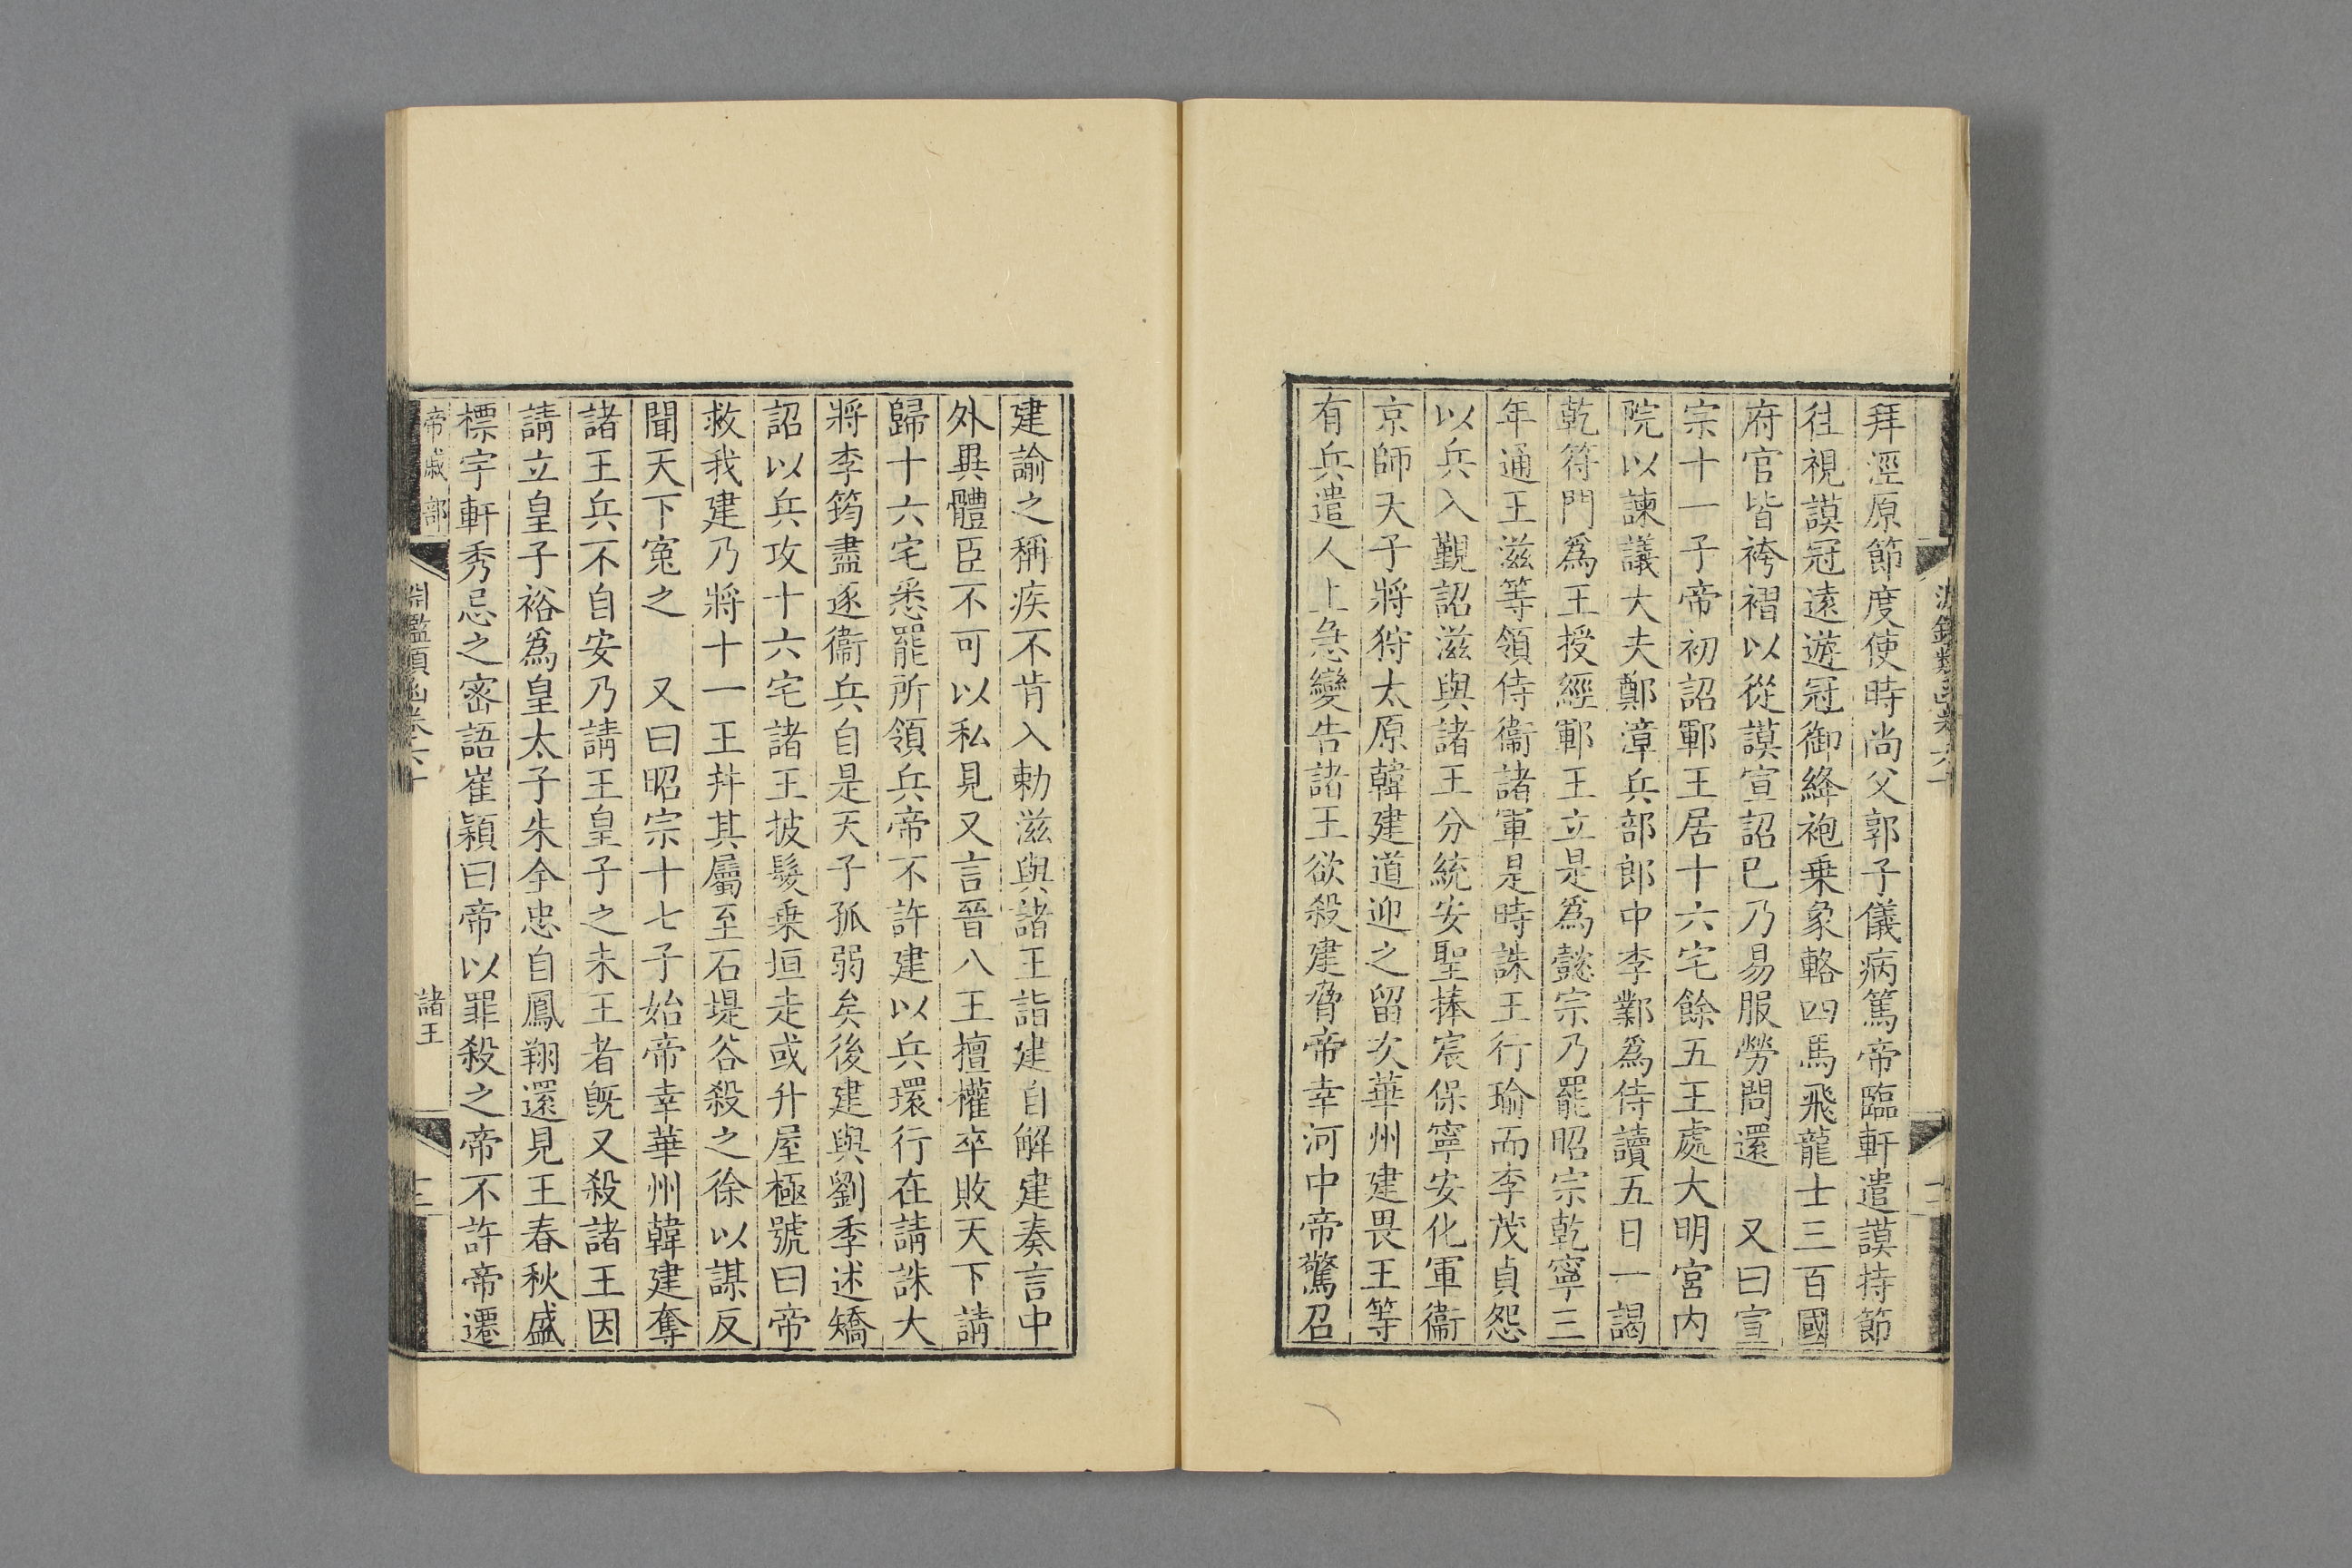 拜涇原節度使時尚父郭子儀病篤帝臨軒遣謨持節
往視謨冠遠遊冠御絳袍乗象輅四馬飛龍士三百國
府官皆袴褶以從謨宣詔已乃易服勞問還　又曰宣
宗十一子帝初詔鄆王居十六宅餘五王處大明宮内
院以諫議大夫鄭漳兵部郎中李鄴爲侍讀五日一謁
乾符門爲王授經鄆王立是爲懿宗乃罷昭宗乾寧三
年通王滋等領侍衞諸軍是時誅王行瑜而李茂貞怨
以兵入覲詔滋與諸王分統安聖捧宸保寧安化軍衞
京師天子將狩太原韓建道迎之留次華州建畏王等
有兵遣人上急變告諸王欲殺建脅帝幸河中帝驚召
建諭之稱疾不肯入勅滋與諸王詣建自解建奏言中
外異體臣不可以私見又言晉八王擅權卒敗天下請
歸十六宅悉罷所領兵帝不許建以兵環行在請誅大
將李筠盡逐衞兵自是天子孤弱矣後建與劉季述矯
詔以兵攻十六宅諸王披髮乗垣走或升屋極號曰帝
救我建乃將十一王幷其屬至石堤谷殺之徐以謀反
聞天下寃之　又曰昭宗十七子始帝幸華州韓建奪
諸王兵不自安乃請王皇子之未王者旣又殺諸王因
請立皇子裕爲皇太子朱全忠自鳳翔還見王春秋盛
標宇軒秀忌之密語崔穎曰帝以罪殺之帝不許帝遷
帝戚部　淵鑑類函卷六十　諸王　十三